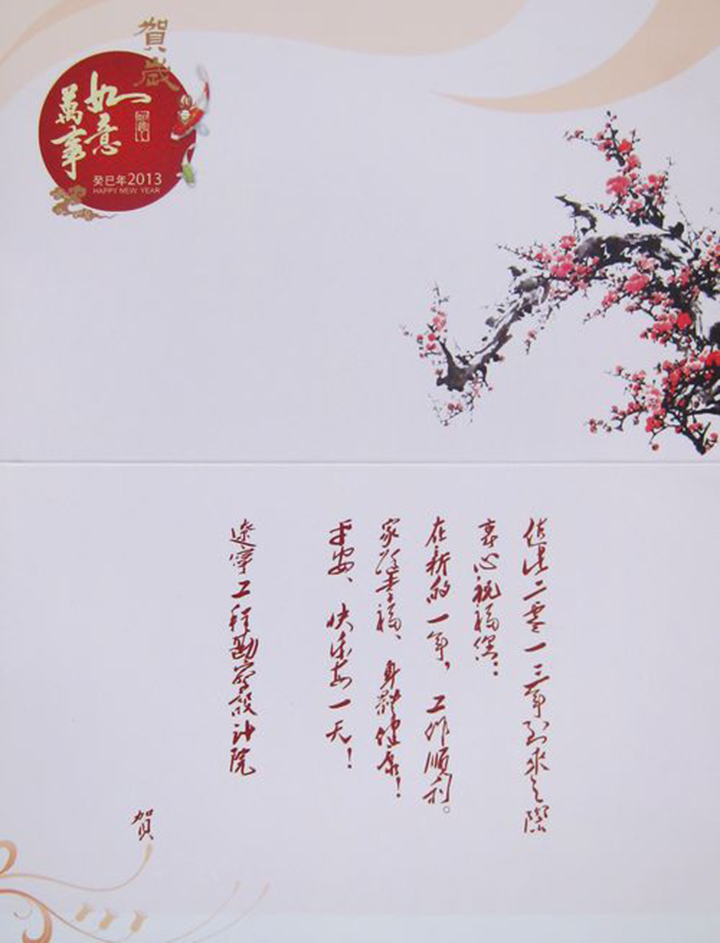 賀歲
如意
萬事
癸巳年2013
HAPPY NEW YEAR
值此二零一三年到來之際
衷心祝福您：
在新的一年，工作順利。
家庭幸福、身體健康！
平安、快乐每一天！
遼寧工程勘察設計院
賀